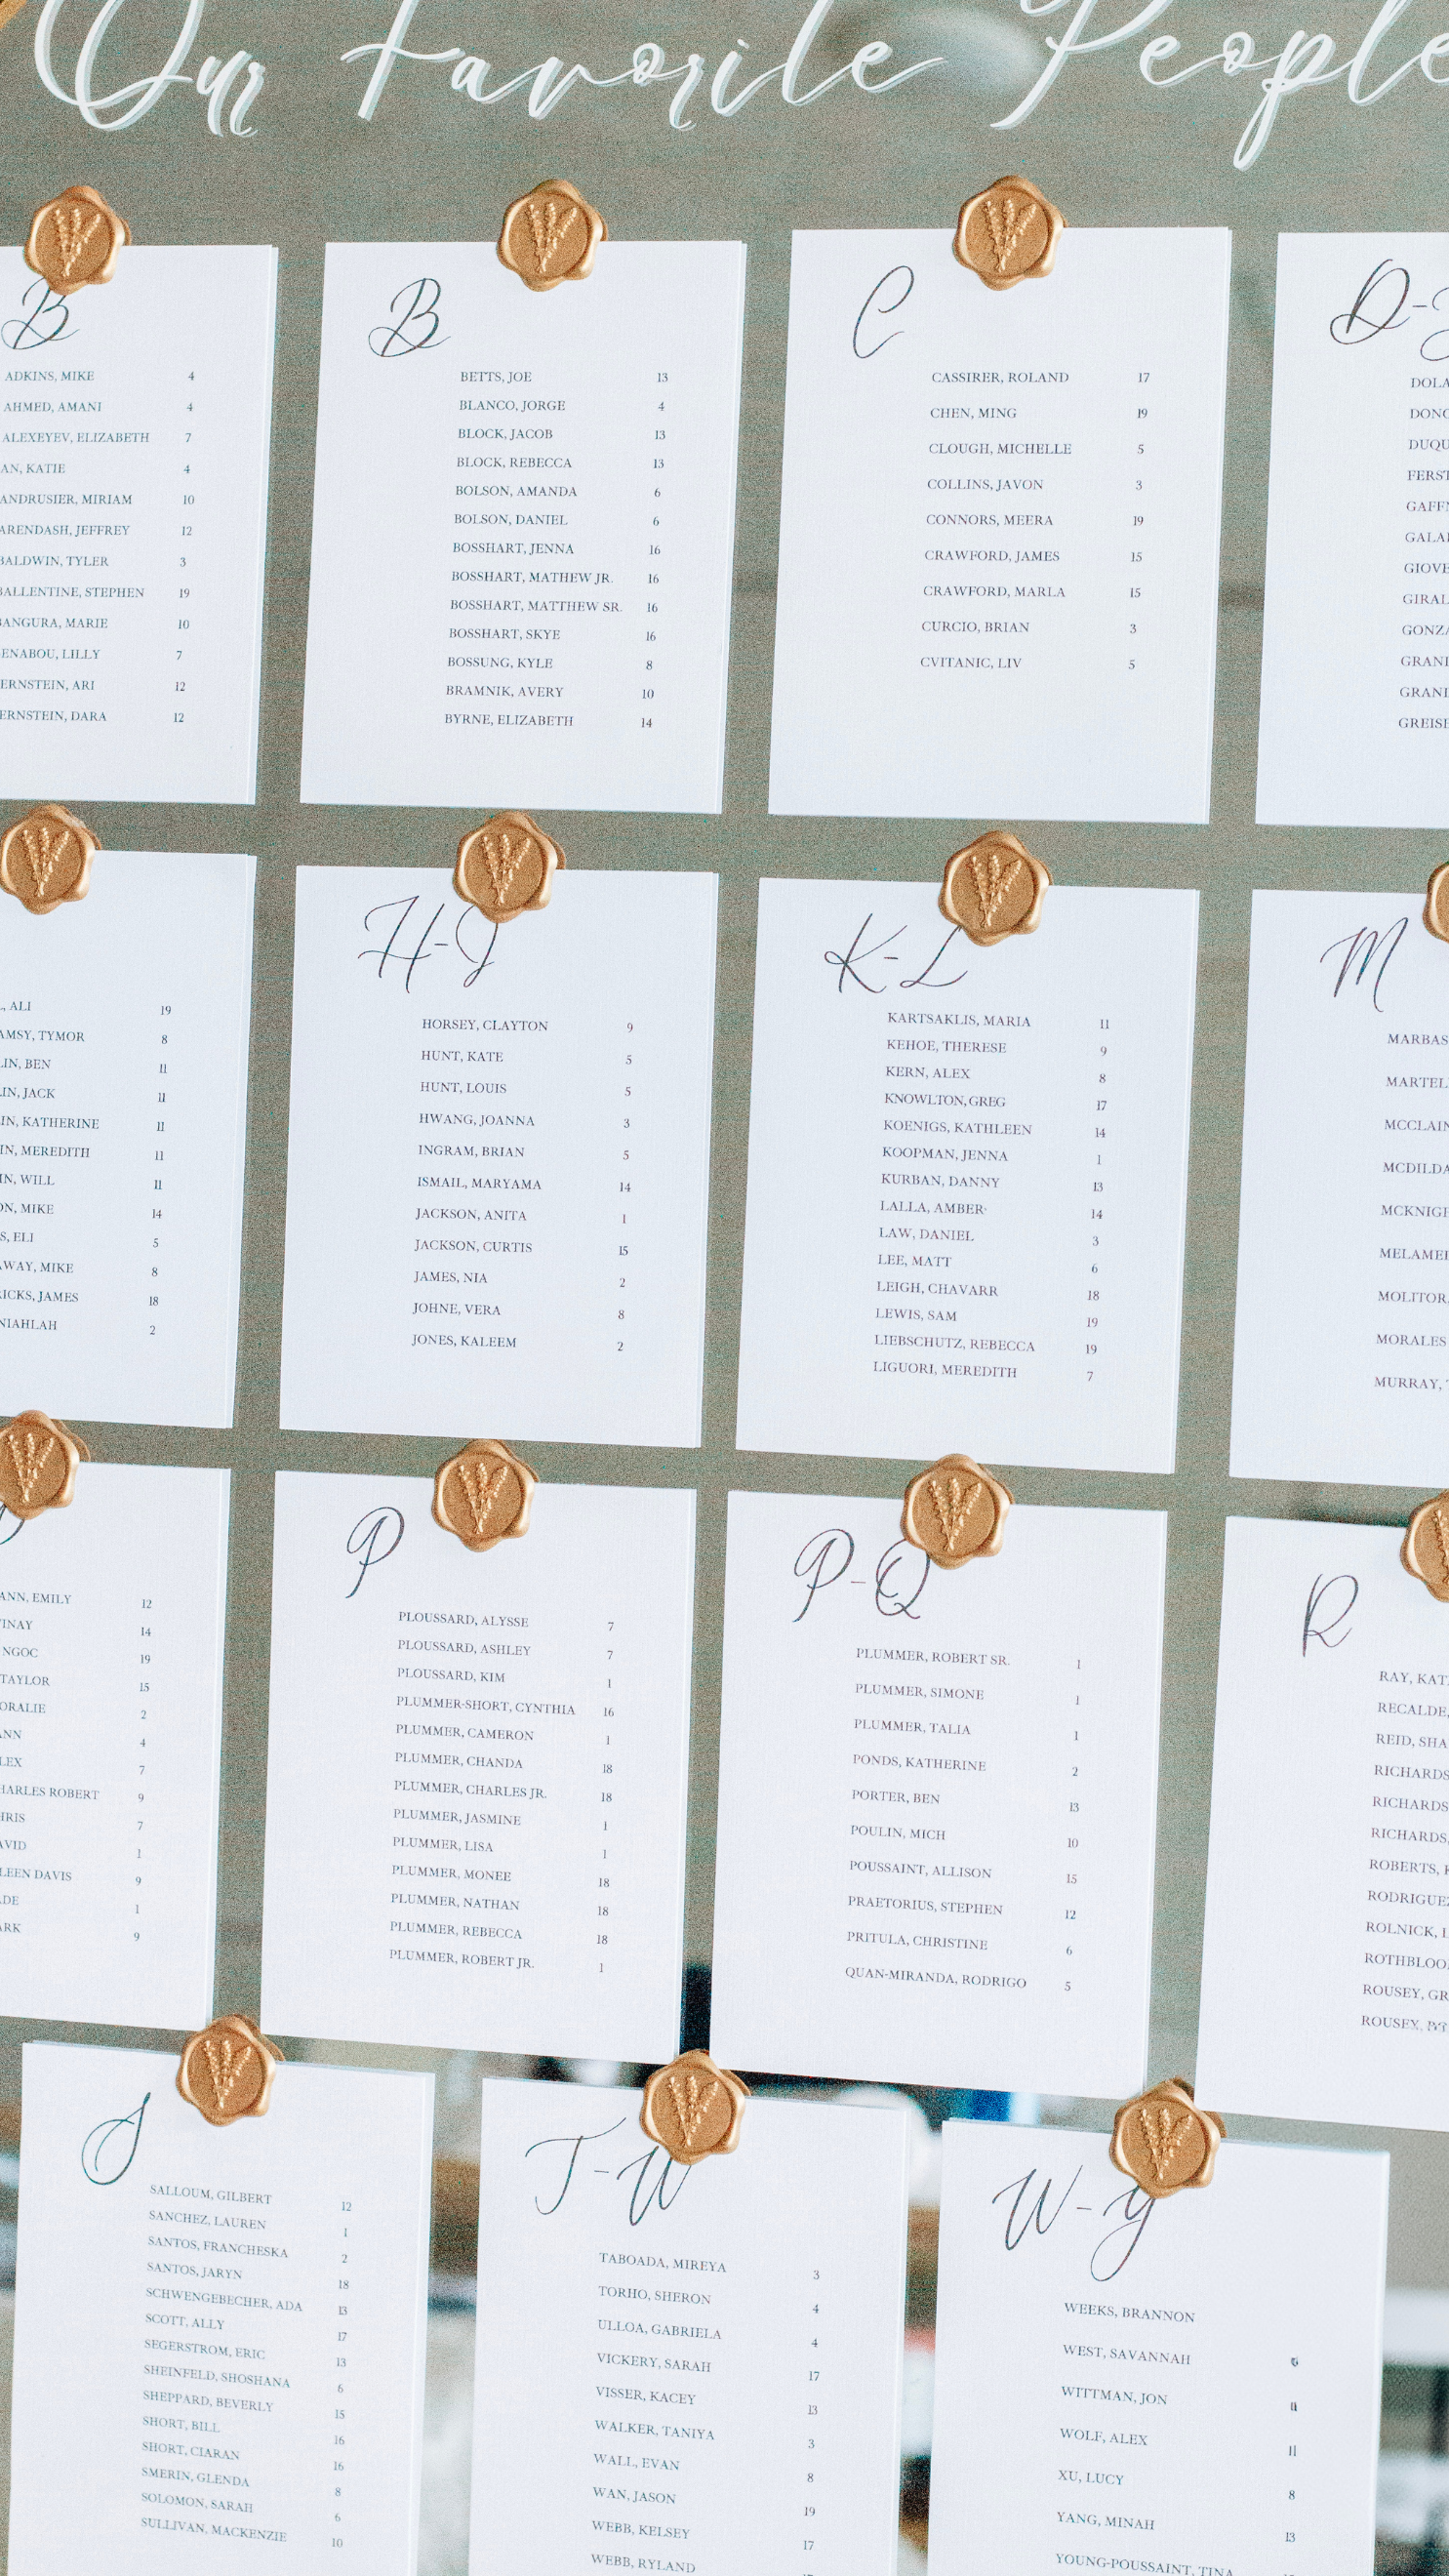 Our Favorite People
B
ADKINS, MIKE 4
AHMED, AMANI 4
ALEXEYEV, ELIZABETH 7
AN, KATIE 4
ANDRUSIER, MIRIAM 10
ARENDASH, JEFFREY 12
BALDWIN, TYLER 3
BALLENTINE, STEPHEN 19
BANGURA, MARIE 10
ENABOU, LILLY 7
ERNSTEIN, ARI 12
ERNSTEIN, DARA 12
B
BETTS, JOE 13
BLANCO, JORGE 4
BLOCK, JACOB 13
BLOCK, REBECCA 13
BOLSON, AMANDA 6
BOLSON, DANIEL 6
BOSSHART, JENNA 16
BOSSHART, MATHEW JR. 16
BOSSHART, MATTHEW SR. 16
BOSSHART, SKYE 16
BOSSUNG, KYLE 8
BRAMNIK, AVERY 10
BYRNE, ELIZABETH 14
C
CASSIRER, ROLAND 17
CHEN, MING 19
CLOUGH, MICHELLE 5
COLLINS, JAVON 3
CONNORS, MEERA 19
CRAWFORD, JAMES 15
CRAWFORD, MARLA 15
CURCIO, BRIAN 3
CVITANIC, LIV 5
D-
DOLA
DONO
DUQU
FERST
GAFFN
GALA
GIOVE
GIRAL
GONZA
GRANI
GRANI
GREISE
, ALI 19
AMSY, TYMOR 8
LIN, BEN 11
IN, JACK 11
IN, KATHERINE 11
IN, MEREDITH 11
IN, WILL 11
ON, MIKE 14
S, ELI 5
AWAY, MIKE 8
RICKS, JAMES 18
NIAHLAH 2
H-J
HORSEY, CLAYTON 9
HUNT, KATE 5
HUNT, LOUIS 5
HWANG, JOANNA 3
INGRAM, BRIAN 5
ISMAIL, MARYAMA 14
JACKSON, ANITA 1
JACKSON, CURTIS 15
JAMES, NIA 2
JOHNE, VERA 8
JONES, KALEEM 2
K-L
KARTSAKLIS, MARIA 11
KEHOE, THERESE 9
KERN, ALEX 8
KNOWLTON, GREG 17
KOENIGS, KATHLEEN 14
KOOPMAN, JENNA 1
KURBAN, DANNY 13
LALLA, AMBER 14
LAW, DANIEL 3
LEE, MATT 6
LEIGH, CHAVARR 18
LEWIS, SAM 19
LIEBSCHUTZ, REBECCA 19
LIGUORI, MEREDITH 7
M
MARBAS
MARTEL
MCCLAIN
MCDILDA
MCKNIGH
MELAMED
MOLITOR,
MORALES
MURRAY,
ANN, EMILY 12
INAY 14
NGOC 19
TAYLOR 15
ORALIE 2
ANN 4
LEX 7
HARLES ROBERT 9
HRIS 7
AVID 1
LEEN DAVIS 9
DE 1
ARK 9
P
PLOUSSARD, ALYSSE 7
PLOUSSARD, ASHLEY 7
PLOUSSARD, KIM 1
PLUMMER-SHORT, CYNTHIA 16
PLUMMER, CAMERON 1
PLUMMER, CHANDA 18
PLUMMER, CHARLES JR. 18
PLUMMER, JASMINE 1
PLUMMER, LISA 1
PLUMMER, MONEE 18
PLUMMER, NATHAN 18
PLUMMER, REBECCA 18
PLUMMER, ROBERT JR. 1
P-Q
PLUMMER, ROBERT SR. 1
PLUMMER, SIMONE 1
PLUMMER, TALIA 1
PONDS, KATHERINE 2
PORTER, BEN 13
POULIN, MICH 10
POUSSAINT, ALLISON 15
PRAETORIUS, STEPHEN 12
PRITULA, CHRISTINE 6
QUAN-MIRANDA, RODRIGO 5
R
RAY, KAT
RECALDE,
REID, SHA
RICHARDS
RICHARDS
RICHARDS,
ROBERTS,
RODRIGUEZ
ROLNICK,
ROTHBLOO
ROUSEY, GR
ROUSEY,
S
SALLOUM, GILBERT 12
SANCHEZ, LAUREN 1
SANTOS, FRANCHESKA 2
SANTOS, JARYN 18
SCHWENGEBECHER, ADA 13
SCOTT, ALLY 17
SEGERSTROM, ERIC 13
SHEINFELD, SHOSHANA 6
SHEPPARD, BEVERLY 15
SHORT, BILL 16
SHORT, CIARAN 16
SMERIN, GLENDA 8
SOLOMON, SARAH 6
SULLIVAN, MACKENZIE 10
T-W
TABOADA, MIREYA 3
TORHO, SHERON 4
ULLOA, GABRIELA 4
VICKERY, SARAH 17
VISSER, KACEY 13
WALKER, TANIYA 3
WALL, EVAN 8
WAN, JASON 19
WEBB, KELSEY 17
WEBB, RYLAND
W-Y
WEEKS, BRANNON
WEST, SAVANNAH 6
WITTMAN, JON 11
WOLF, ALEX 11
XU, LUCY 8
YANG, MINAH 13
YOUNG-POUSSAINT, TINA